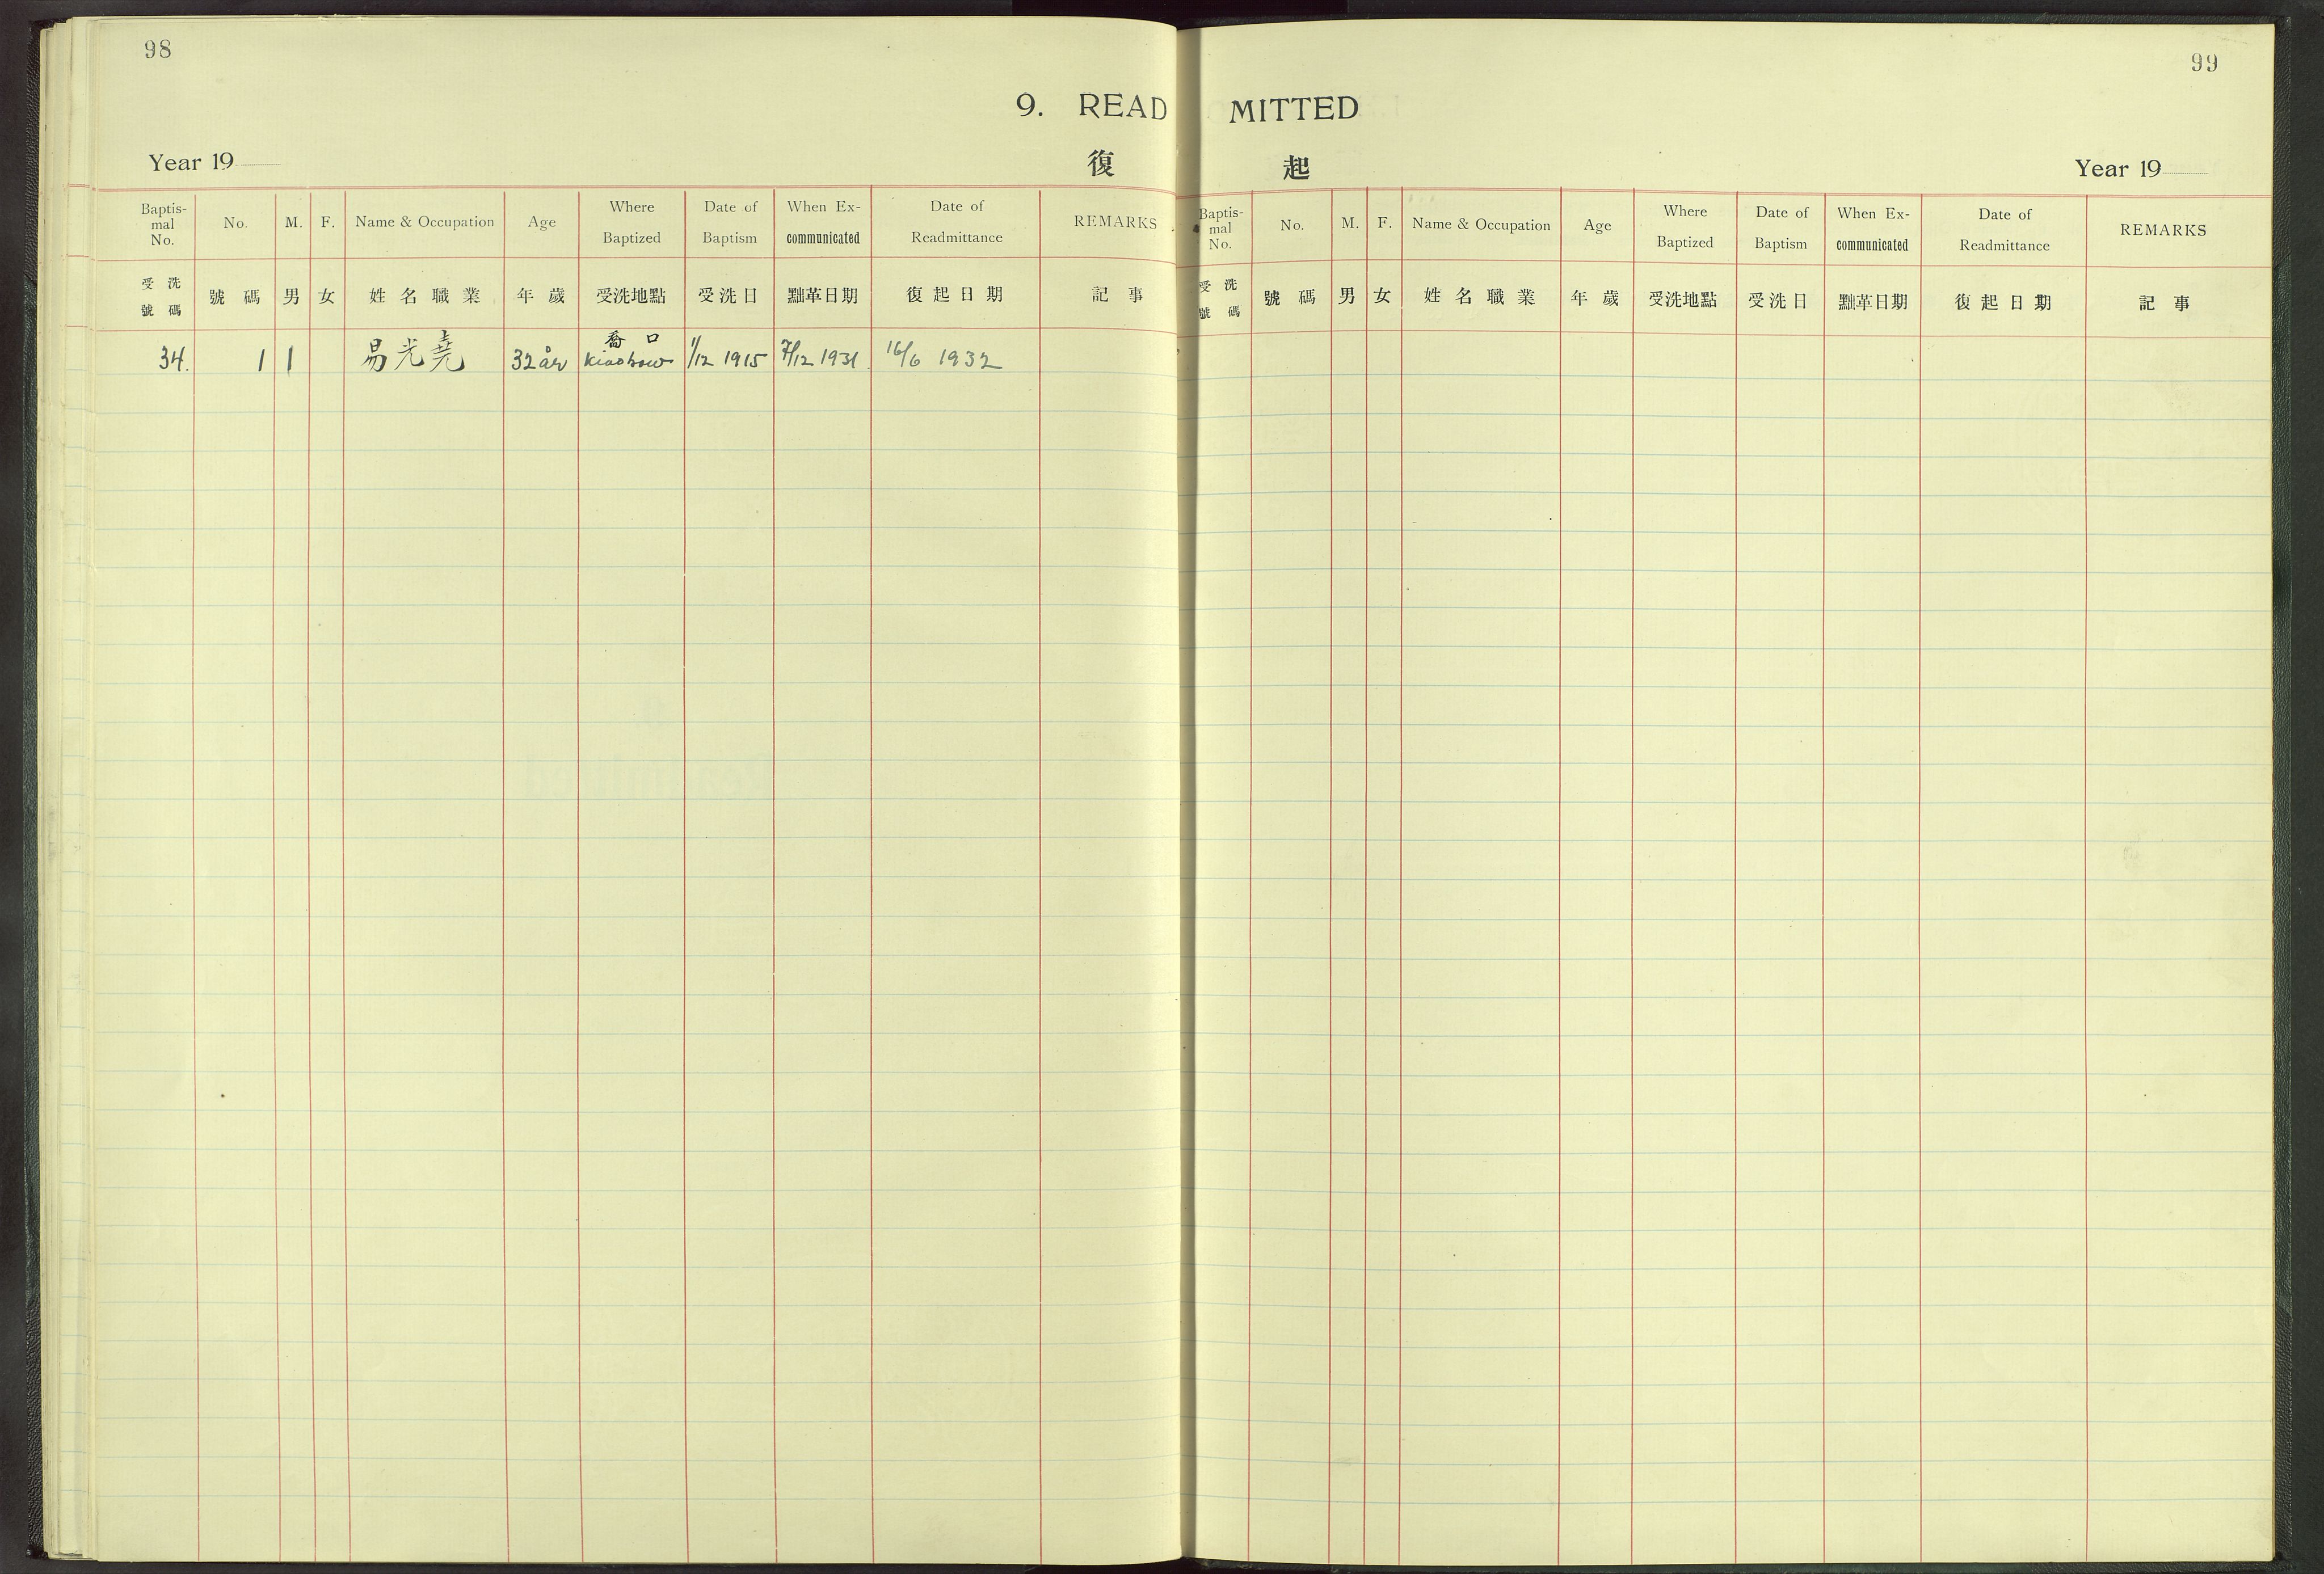 98
99
9. READMITTED
復起
Year 19
Year 19
Baptismal No. No. M. F. Name & Occupation Age Where Baptized Date of Baptism When Excommunicated Date of Readmittance REMARKS
受洗號碼 號碼 男 女 姓名職業 年歲 受洗地點 受洗日 黜革日期 復起日期 記事
34. 1 1 易光堯 32 år 喬口 Kiaokow 1/12 1915 7/12 1931 16/6 1932
Baptismal No. No. M. F. Name & Occupation Age Where Baptized Date of Baptism When Excommunicated Date of Readmittance REMARKS
受洗號碼 號碼 男 女 姓名職業 年歲 受洗地點 受洗日 黜革日期 復起日期 記事